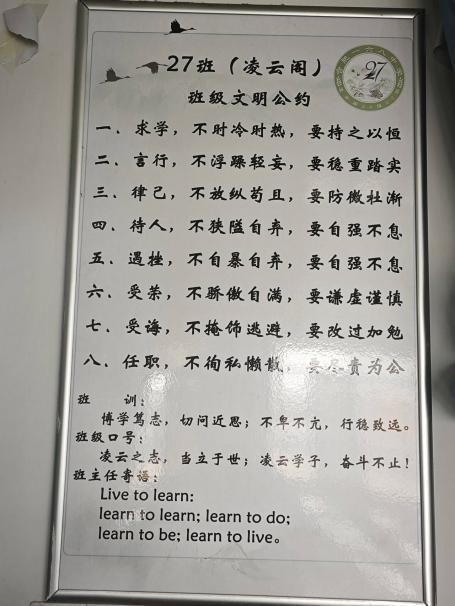 27班（凌云阁）
27
班级文明公约
一、求学，不时冷时热，要持之以恒
二、言行，不浮躁轻妄，要稳重踏实
三、律己，不放纵苟且，要防微杜渐
四、待人，不狭隘自弃，要自强不息
五、遇挫，不自暴自弃，要自强不息
六、受荣，不骄傲自满，要谦虚谨慎
七、受诲，不掩饰逃避，要改过加勉
八、任职，不徇私懒散，要尽责为公
班 训：
博学笃志，切问近思；不卑不亢，行稳致远。
班级口号：
凌云之志，当立于世；凌云学子，奋斗不止！
班主任寄语：
Live to learn:
learn to learn; learn to do;
learn to be; learn to live。